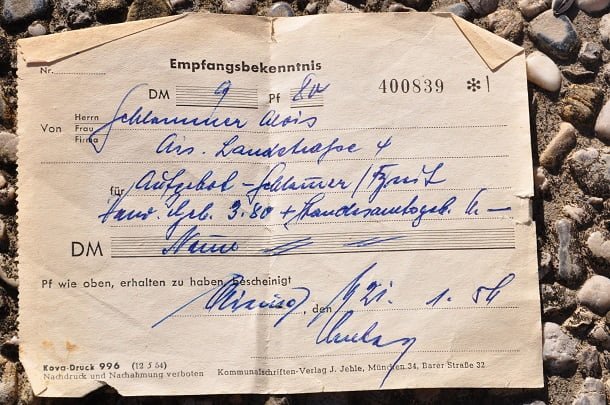 Nr.
Empfangsbekenntnis
DM 9 Pf 80 400839 *
Herrn
Von Frau
Firma
Schlammer Alois
Landstraße 4
für Aufgebot - Schlammer /
3.80 + Standesamtsgeb. 6.-
DM Neun
Pf wie oben, erhalten zu haben bescheinigt
, den 21. 1. 54
Kova-Druck 996 (12 5 54)
Nachdruck und Nachahmung verboten
Kommunalschriften-Verlag J. Jehle, München 34, Barer Straße 32